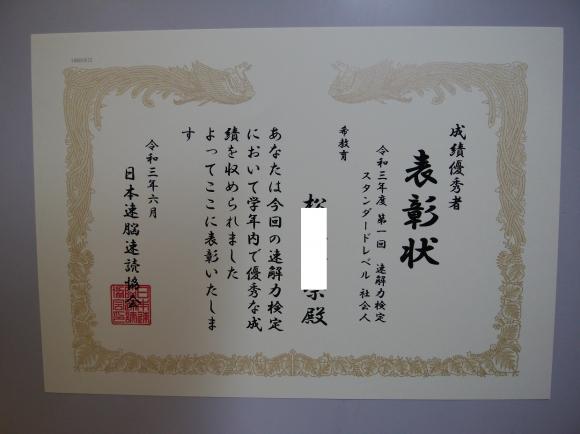 成績優秀者
表彰状
令和三年度 第一回 速解力検定
スタンダードレベル 社会人
希教育
松 奈殿
あなたは今回の速解力検定
において学年内で優秀な成
績を収められました
よってここに表彰いたしま
す
令和三年六月
日本速脳速読協会